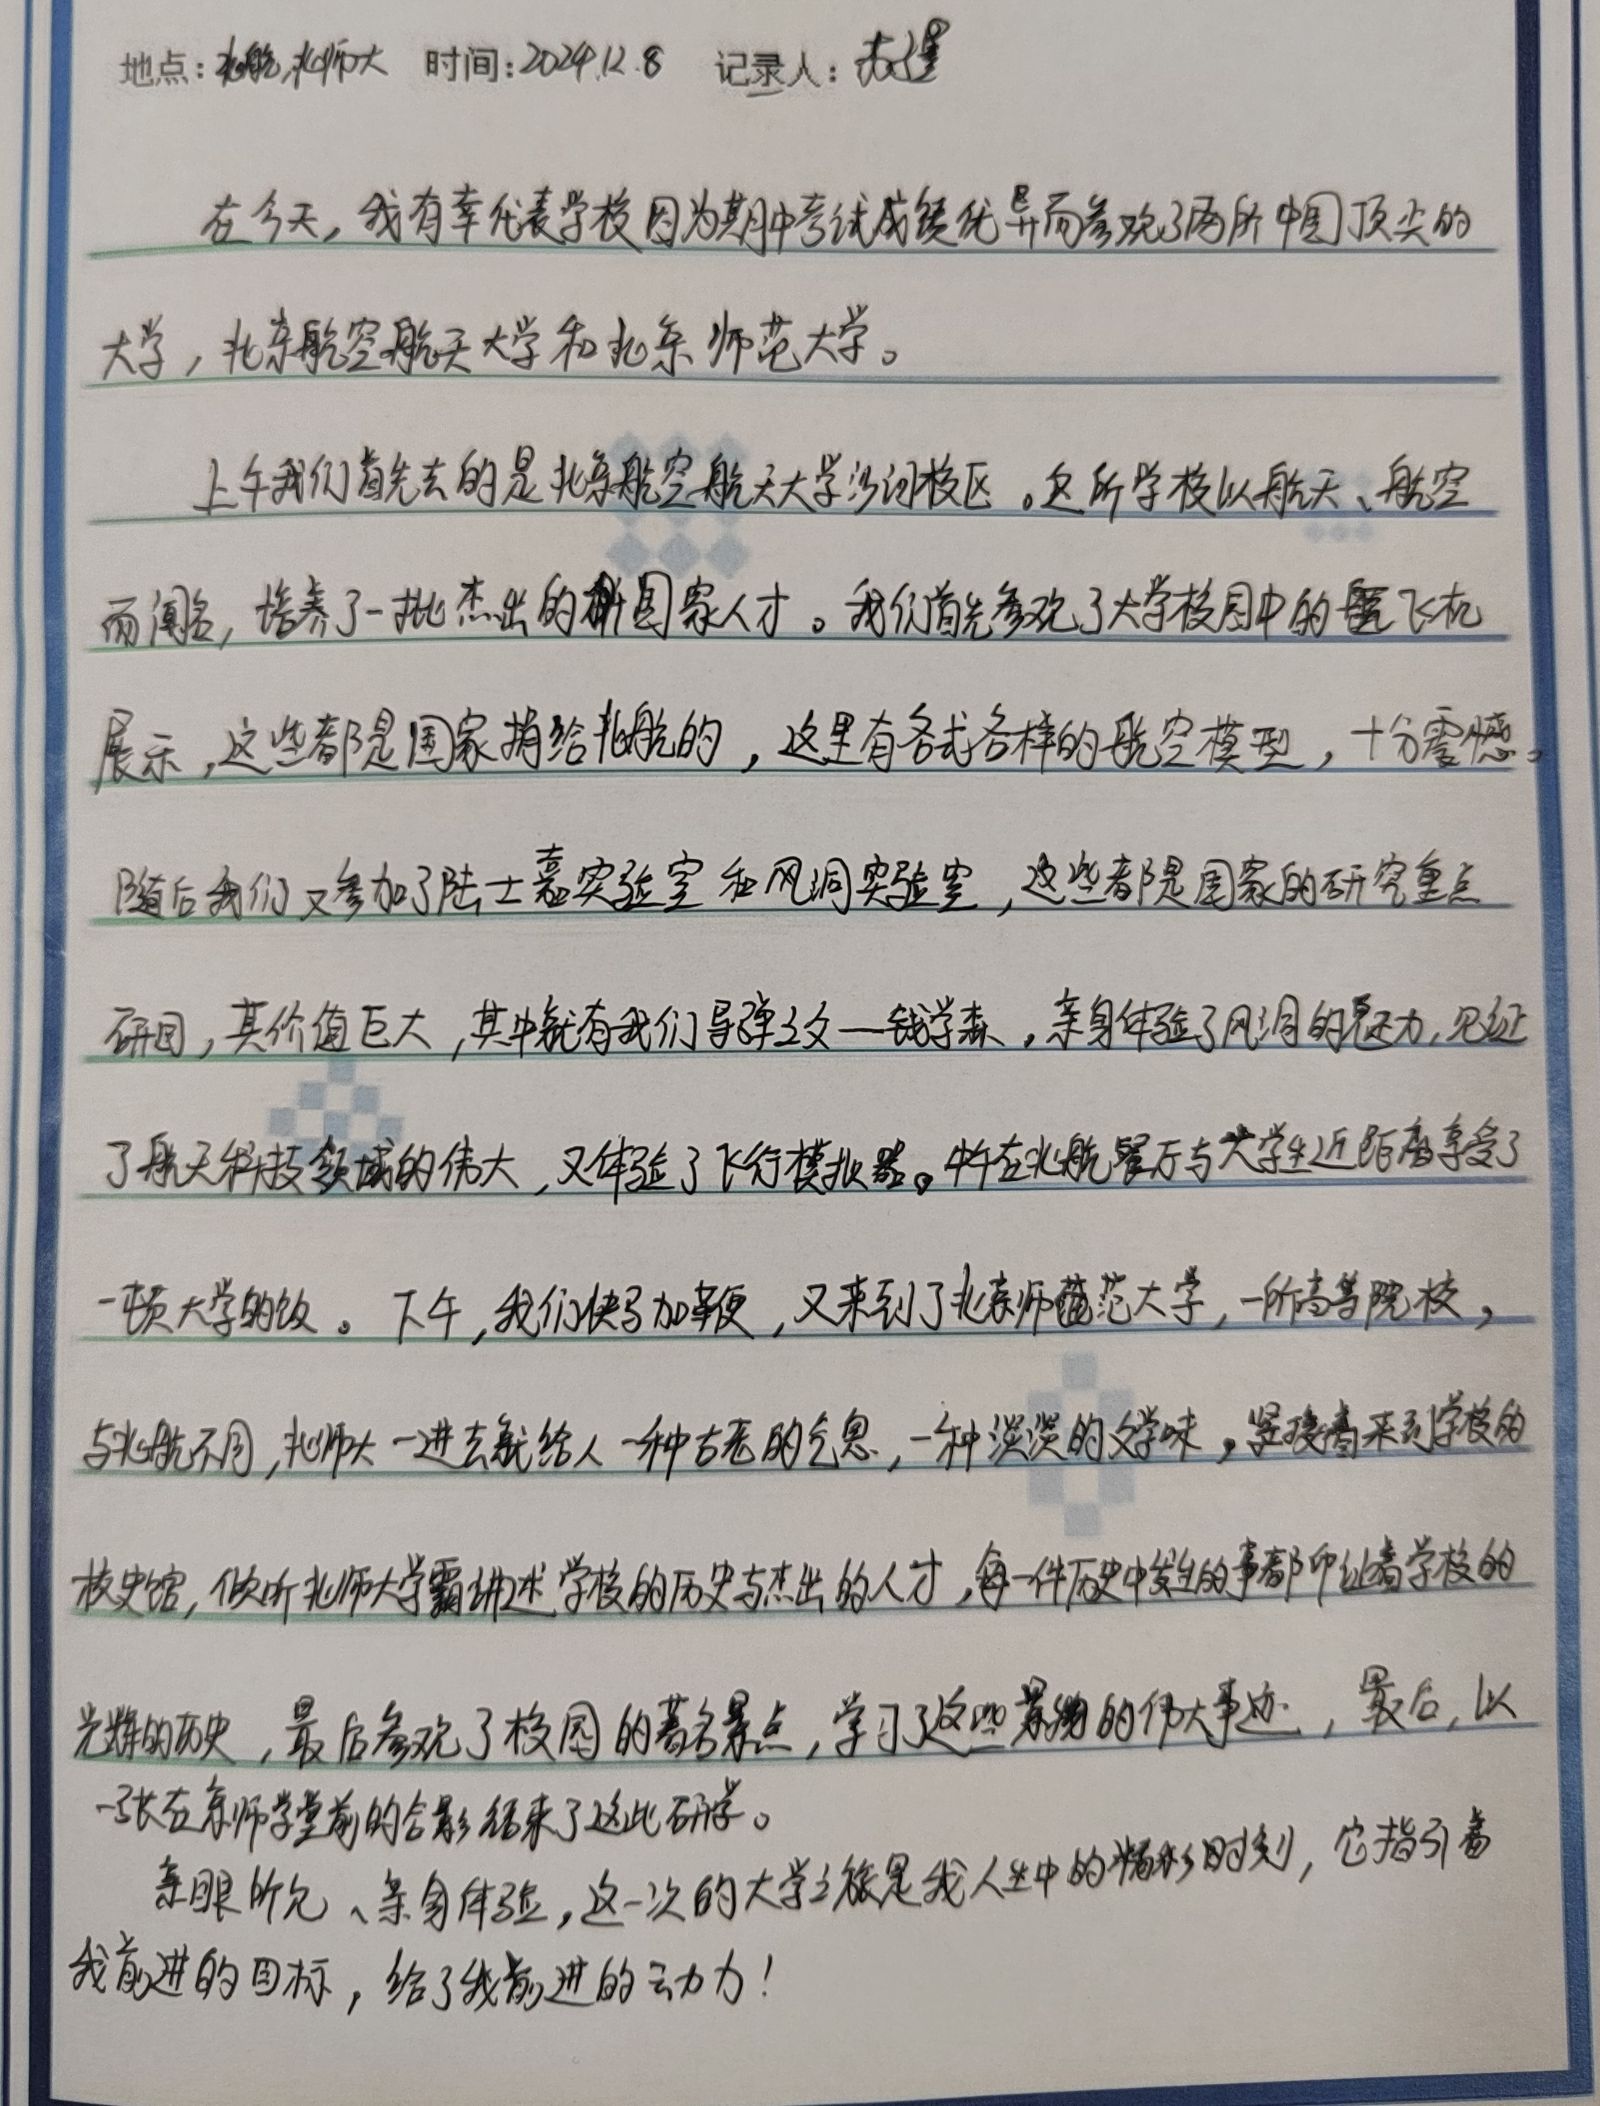 地点：北航,北师大 时间：2024.12.8 记录人：
在今天，我有幸代表学校因为期中考试成绩优异而参观了两所中国顶尖的
大学，北京航空航天大学和北京师范大学。
上午我们首先去的是北京航空航天大学沙河校区。这所学校以航天、航空
而闻名，培养了一批杰出的国家人才。我们首先参观了大学校园中的飞机
展示，这些都是国家捐给北航的，这里有各式各样的航空模型，十分震憾。
随后我们又参加了陆士嘉实验室和风洞实验室，这些都是国家的研究重点
研目，其价值巨大，其中就有我们导弹之父—钱学森，亲身体验了风洞的魅力，见证
了航天科技领域的伟大，又体验了飞行模拟器。中午在北航餐厅与大学生近距离享受了
一顿大学的饭。下午，我们快马加鞭，又来到了北京师范大学，一所高等院校，
与北航不同，北师大一进去就给人一种古老的气息，一种淡淡的文学味，紧接着来到学校的
校史馆，倾听北师大学霸讲述学校的历史与杰出的人才，每一件历史中发生的事都印证着学校的
光辉的历史，最后参观了校园的著名景点，学习了这些景物的伟大事迹，最后，以
一张在京师学堂前的合影结束了这此研学。
亲眼所见、亲身体验，这一次的大学之旅是我人生中的精彩时刻，它指引着
我前进的目标，给了我前进的动力！